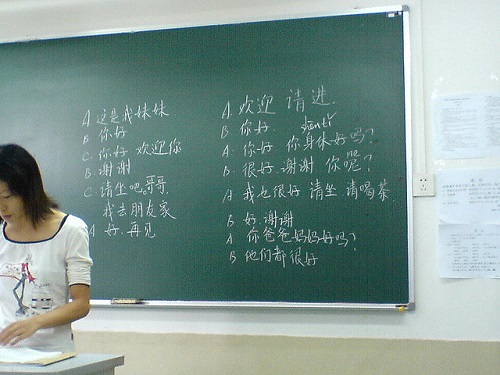 A 这是我妹妹
B 你好
C. 你好 欢迎你
B. 谢谢
C. 请坐吧, 哥哥,
我去朋友家
A 好. 再见
A. 欢迎 请进.
B 你好.
shēntǐ
A. 你好 你身体好吗?
B. 很好. 谢谢 你呢?
A 我也很好 请坐 请喝茶
B 好. 谢谢
A 你爸爸妈妈好吗?
B 他们都很好